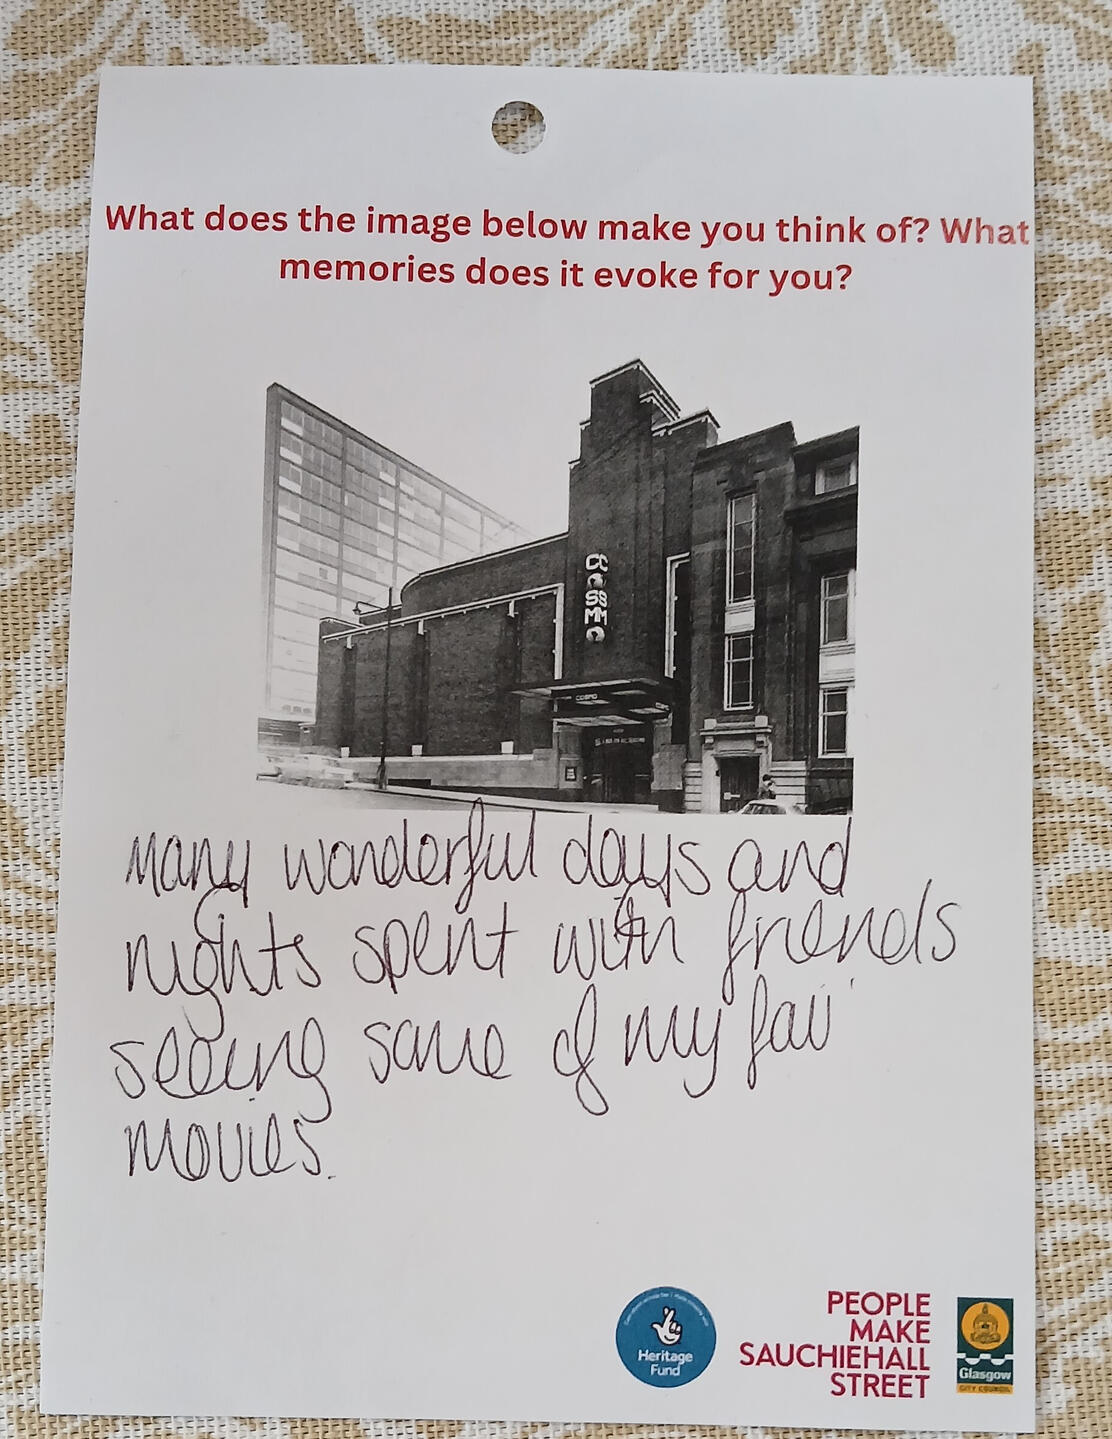 What does the image below make you think of? What
memories does it evoke for you?
COSMO
COSMO
Many wonderful days and
nights spent with friends
seeing some of my fav
movies.
Heritage
Fund
PEOPLE
MAKE
SAUCHIEHALL
STREET
Glasgow
CITY COUNCIL